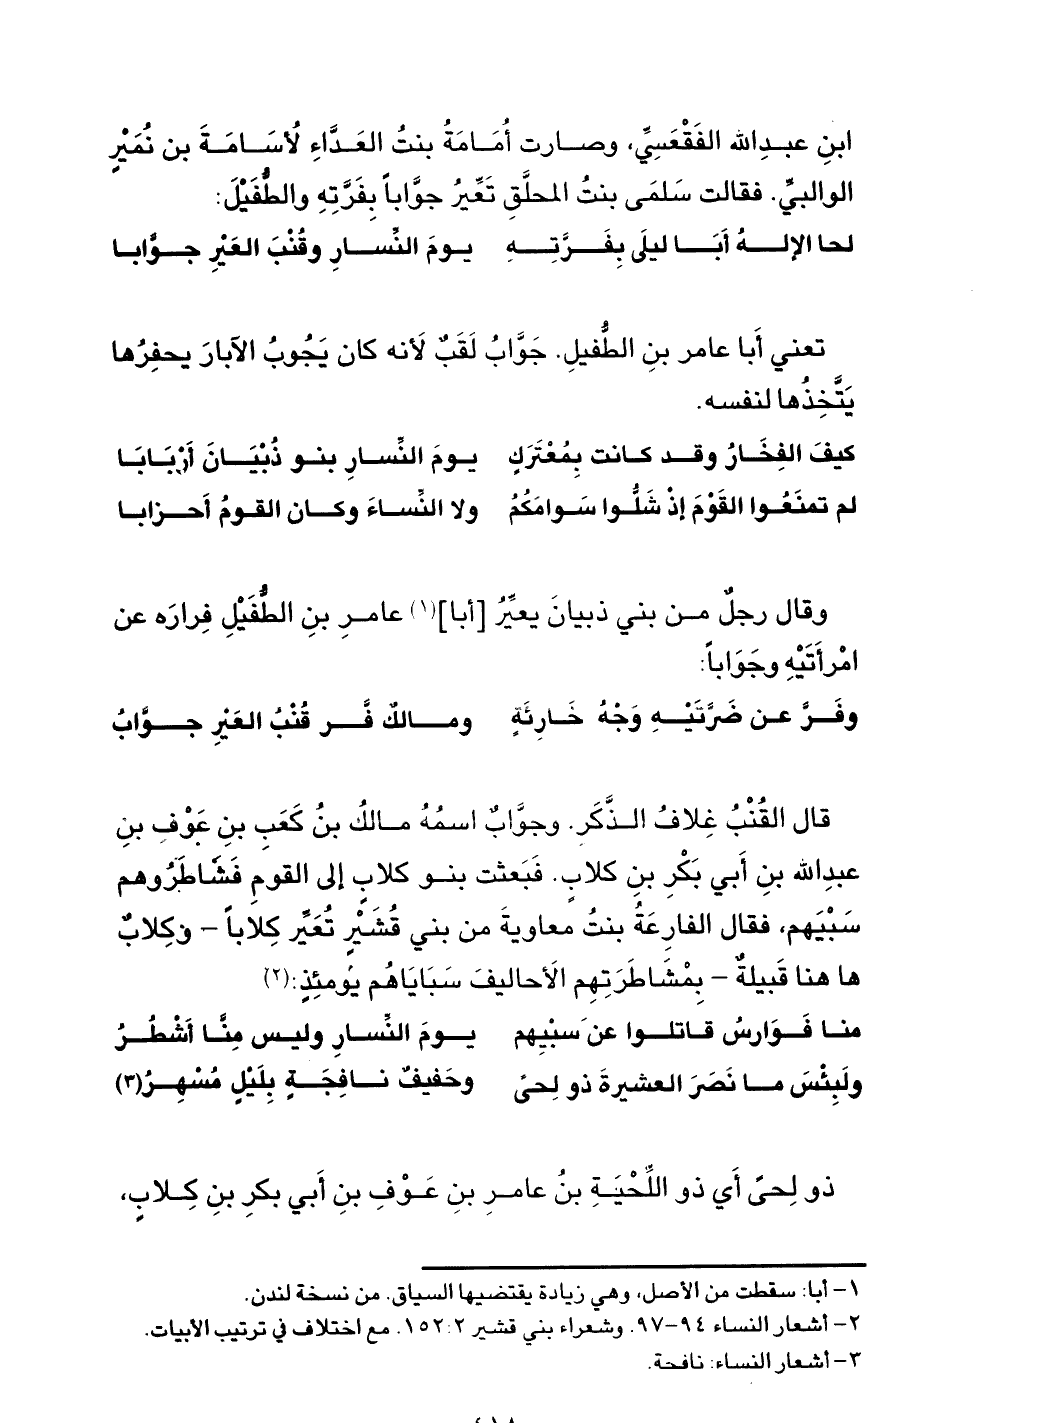 ابنِ عبدِالله الفَقْعَسِيِّ، وصارت أُمَامَةُ بنتُ العَدَّاءِ لُأسَامَةَ بن نُمَيْرٍ
الوالبيِّ. فقالت سَلمَى بنتُ المحلَّقِ تَعَيِّرُ جوَّاباً بِفَرَّتِهِ والطُّفَيْلَ:
لحا الإلهُ أبَا ليلَى بِفَرَّتِهِ يومَ النِّسارِ وقُنْبَ العَيْرِ جوَّابا
تعني أَبا عامر بنِ الطُّفيلِ. جَوَّابُ لَقَبٌ لَأنه كان يَجُوبُ الآبارَ يحفِرُها
يَتَّخِذُها لنفسه.
كيفَ الفِخَارُ وقد كانت بِمُعْتَرَكٍ يومَ النِّسارِ بنو ذُبْيَانَ أرْبَابَا
لم تمنَعُوا القَوْمَ إذْ شَلُّوا سَوامَكُمُ ولا النِّساءَ وكان القومُ أَحزابا
وقال رجلٌ من بني ذبيانَ يعيِّرُ [أبا](١) عامرِ بنِ الطُّفَيْلِ فِرارَه عن
امْرأَتَيْهِ وجَوَاباً:
وفَرَّ عن ضَرَّتَيْهِ وَجْهُ خَارِئَةٍ ومالكٌ فَّر قُنْبُ العَيْرِ جوَّابُ
قال القُنْبُ غِلافُ الذَّكَرِ. وجوَّابٌ اسمُهُ مالكُ بنُ كَعَبِ بنِ عَوْفِ بنِ
عبدِالله بنِ أَبي بَكْرِ بنِ كلابٍ. فَبَعثت بنو كلابٍ إلى القومِ فَشَاطَرُوهم
سَبْيَهم، فقال الفارِعَةُ بنتُ معاويةَ من بني قُشَيْرٍ تُعَيِّر كِلاباً – وَكِلابٌ
ها هنا قَبيلةٌ – بِمْشَاطَرَتِهِم الَأحاليفَ سَبَايَاهُم يَومئِذٍ:(٢)
منا فَوارسُ قاتلوا عن سبْيِهم يومَ النِّسارِ وليس مِنَّا أشْطُرُ
ولَبِئْسَ ما نَصَرَ العشيرةَ ذو لِحىً وحَفيفُ نافِجَةٍ بِلَيْلٍ مُسْهِرُ(٣)
ذو لِحىً أَي ذو اللِّحْيَةِ بنُ عامرِ بنِ عَوْفِ بنِ أَبي بكرِ بنِ كِلابٍ،
١– أبا: سقطت من الأصل، وهي زيادة يقتضيها السياق. من نسخة لندن.
٢– أشعار النساء ٩٤–٩٧. وشعراء بني قشير ١٥٢:٢. مع اختلاف في ترتيب الأبيات.
٣– أشعار النساء: نافحة.